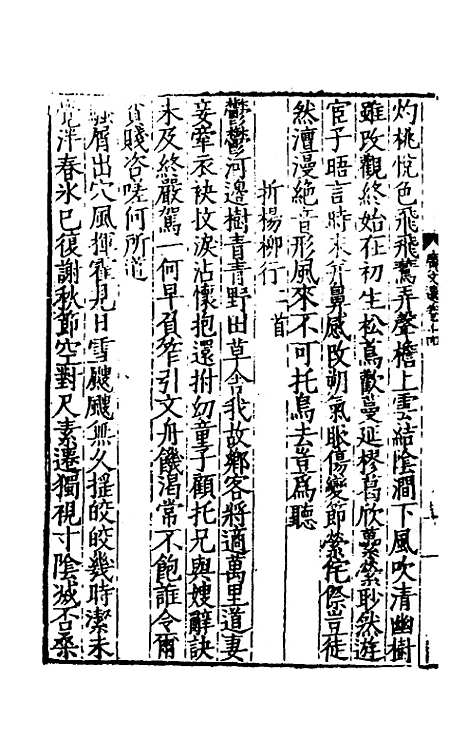 灼桃悅色飛飛鷰弄聲檐上雲結陰澗下風吹清幽樹
雖改觀終始在初生松蔦歡蔓延樛葛欣虆縈眇然遊
宦子晤言時未并鼻感改朔氣眼傷變節榮侘傺豈徒
然澶漫絕音形風來不可托鳥去豈為聽
折楊柳行二首
鬱鬱河邊樹青青野田草舍我故鄉客將適萬里道妻
妾牽衣袂抆淚沾懷抱還拊幼童子顧托兄與嫂辭訣
未及終嚴駕一何早負笮引文舟饑渴常不飽誰令爾
貧賤咨嗟何所道
騷屑出穴風揮霍見日雪颼颼無久搖皎皎幾時潔未
覺泮春氷已復謝秋節空對尺素遷獨視寸陰滅否桑